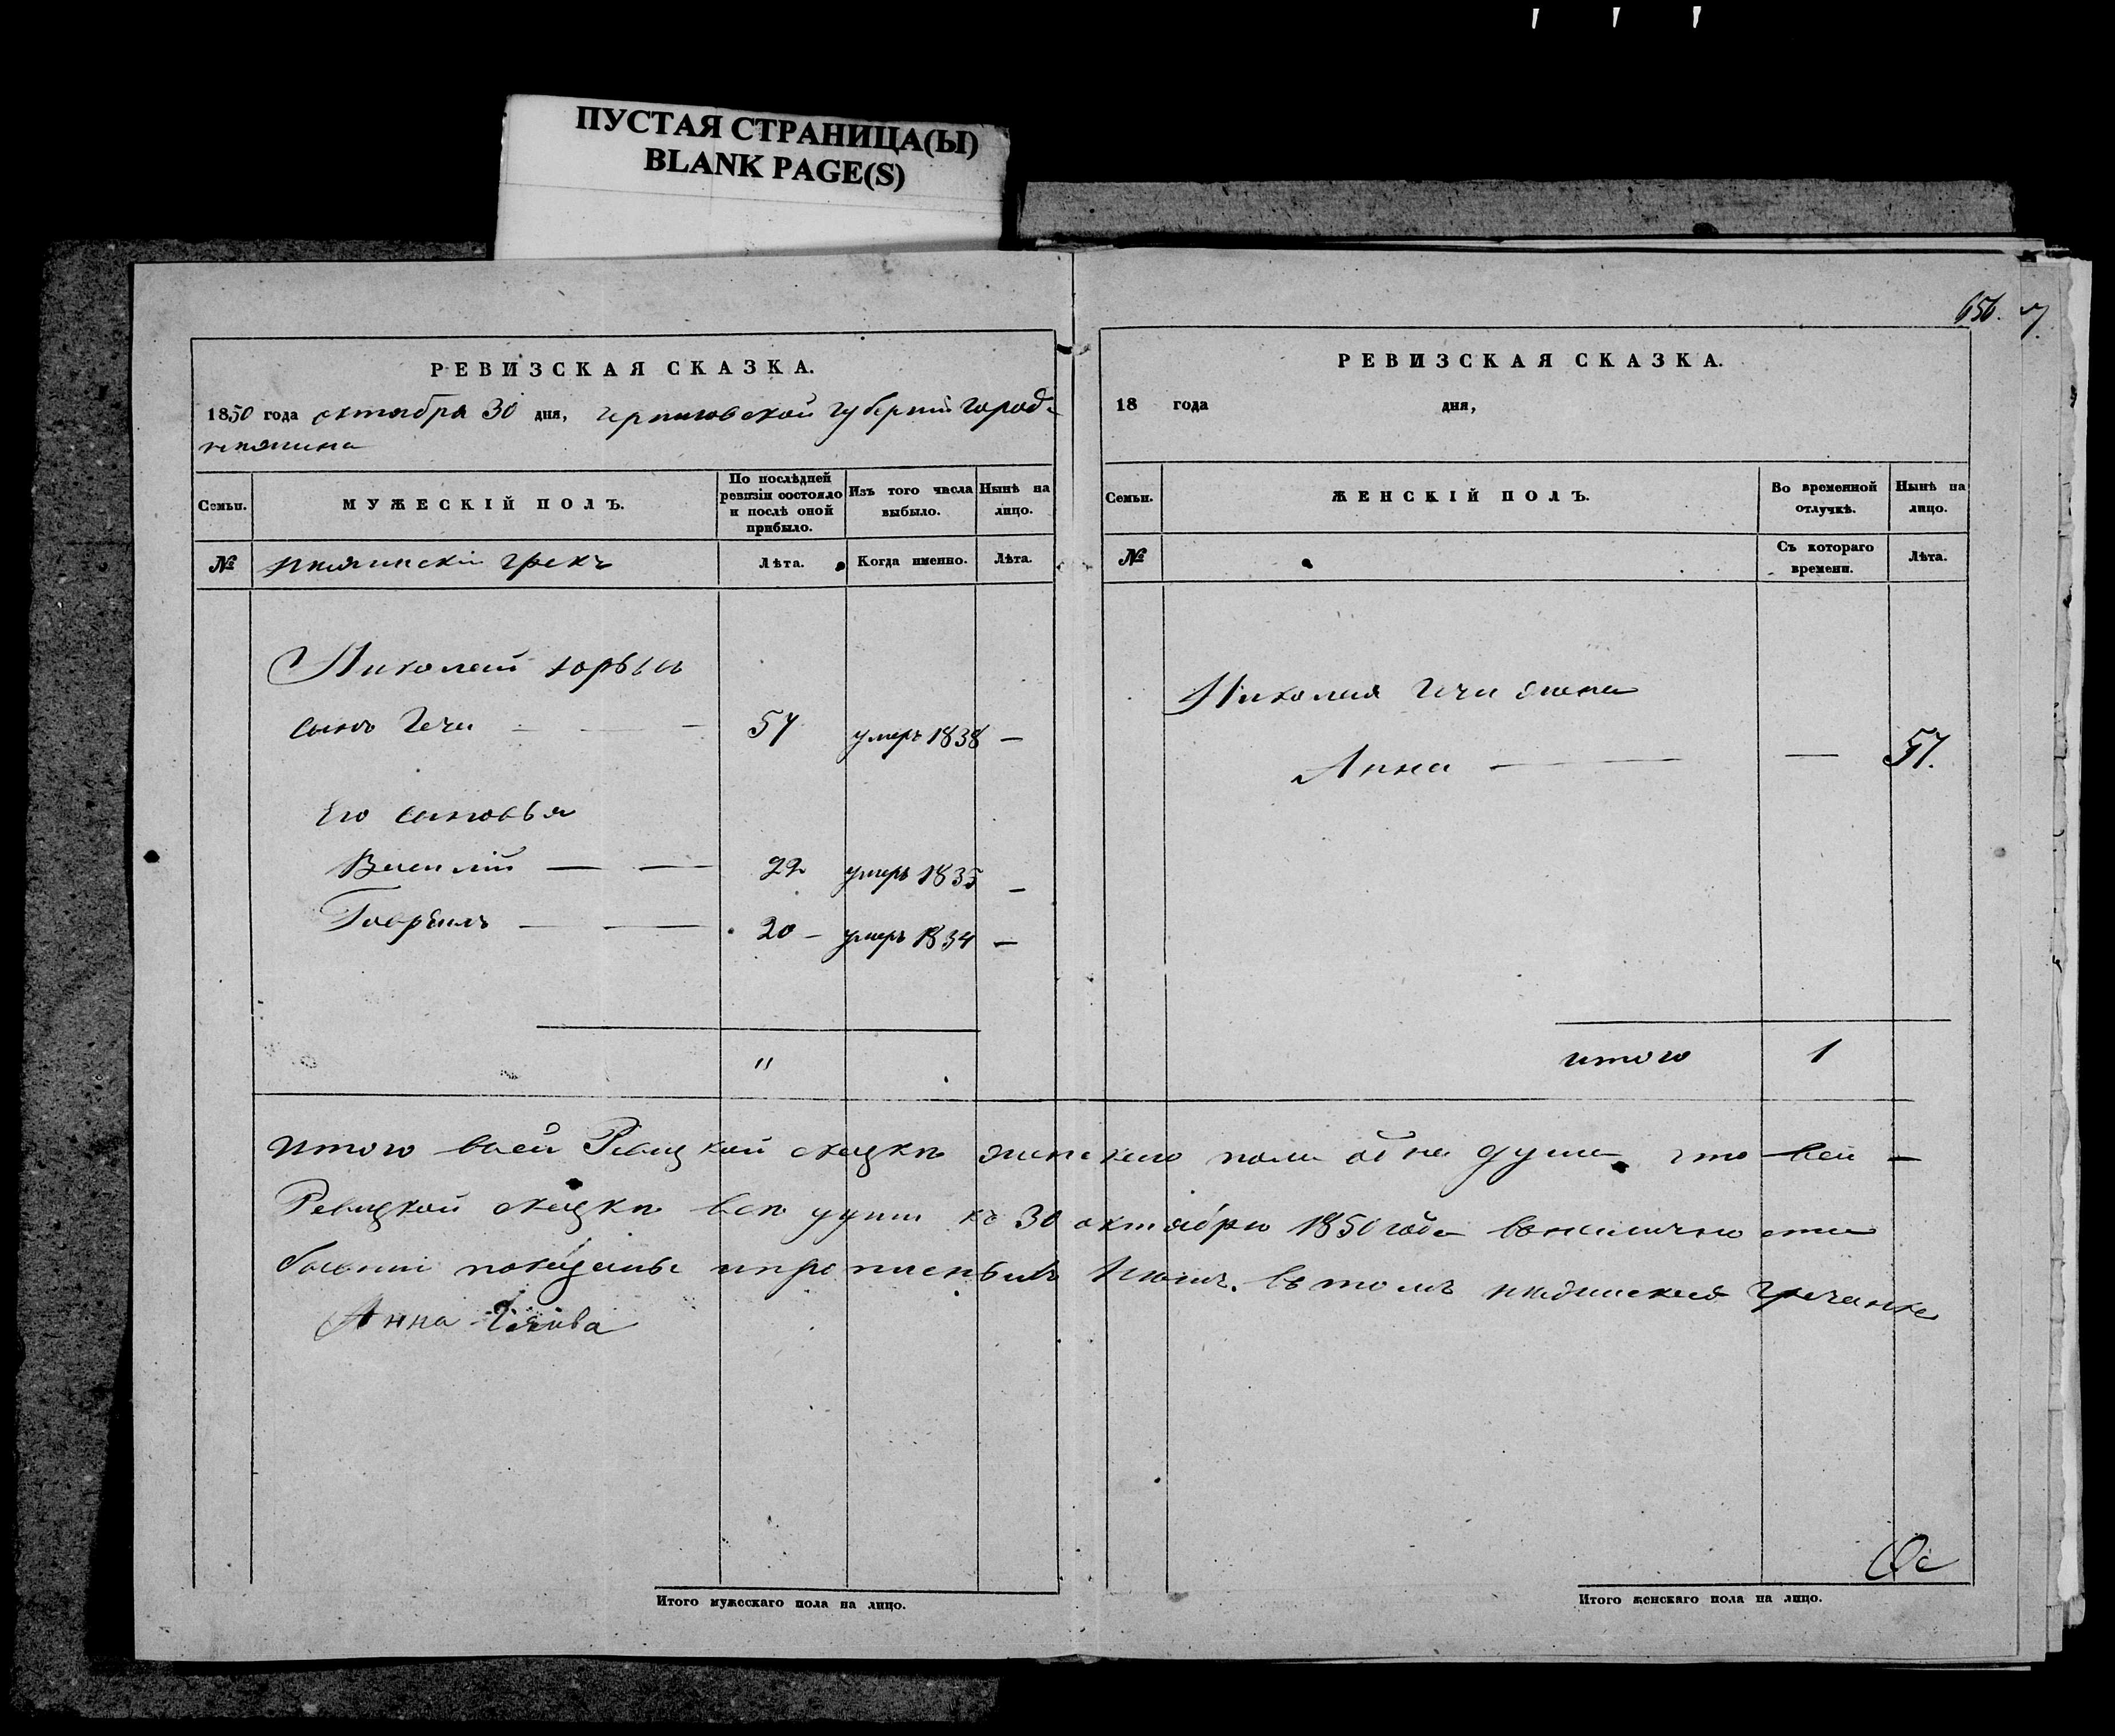 ПУСТАЯ СТРАНИЦА(Ы)
BLANK PAGE(S)
РЕВИЗСКАЯ СКАЗКА.
1850 года октября 30 дня, Черниговской губернии город
нежина
Семьи.
МУЖЕСКІЙ ПОЛЪ.
По послѣдней ревизіи состояло и послѣ оной прибыло.
Изъ того числа выбыло.
Нынѣ на лицо.
№
нежинскій грекъ
Лѣта.
Когда именно.
Лѣта.
Николай Юрьевъ
сынъ Гечи 57 умеръ 1838 —
Его сыновья
Василій — — 22 умеръ 1835 —
Гаврѣилъ — — 20 — умеръ 1834 —
"
656.
РЕВИЗСКАЯ СКАЗКА.
18 года дня,
Семьи.
ЖЕНСКІЙ ПОЛЪ.
Во временной отлучкѣ.
Нынѣ на лицо.
№
Съ котораго времени.
Лѣта.
Николая Гечи жена
Анна — — 57.
итого 1
итого в сей Ревизкой сказки женскаго пола одна душа что в сей
Ревизкой сказки все души къ 30 октябрю 1850 года в наличности
бывшіе показаны и пропненыхъ нѣтъ. в томъ нѣжинская гречанка
Анна Гечива
Итого мужескаго пола на лицо.
Итого женскаго пола на лицо.